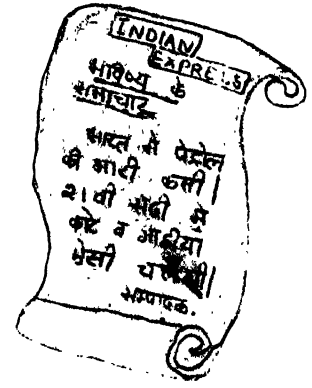 INDIAN
EXPRESS
भविष्य के
समाचार
भारत में पेट्रोल
की भारी कमी।
२१वी सदी में
व
ऐसी
सम्पादक.